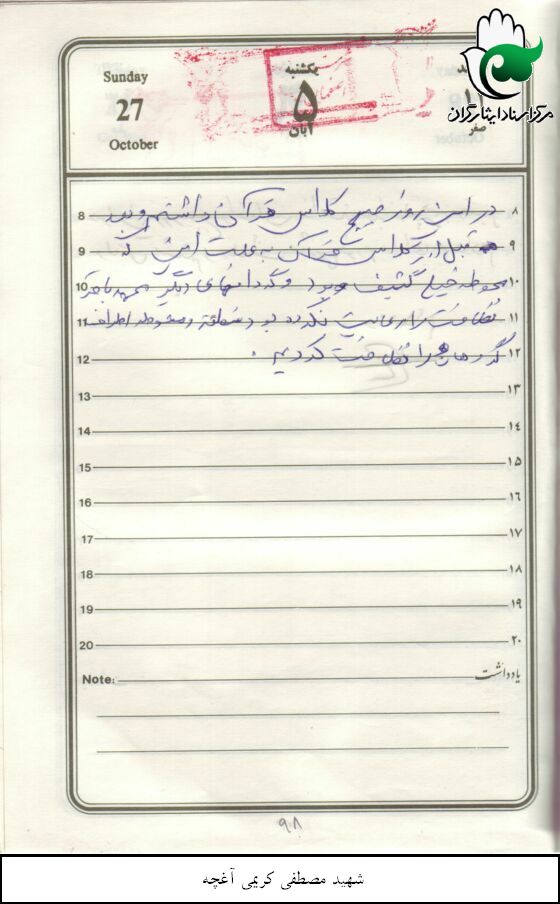 Sunday
27
October
یکشنبه
۵
آبان
صفر
مرکز اسناد ایثارگران
8 در این روز صبح کلاس قرآن داشتم و بعد ۸
9 قبل از کلاس قرآن به علت این که ۹
10 محوطه خیلی کثیف بود و گردانهای دیگر ۱۰
11 نظافت را رعایت نکرده بودند اطراف ۱۱
12 را نظافت کردیم . ۱۲
13 ۱۳
14 ۱۴
15 ۱۵
16 ۱۶
17 ۱۷
18 ۱۸
19 ۱۹
20 ۲۰
Note: یادداشت
۹۰۸
شهید مصطفی کریمی آغچه